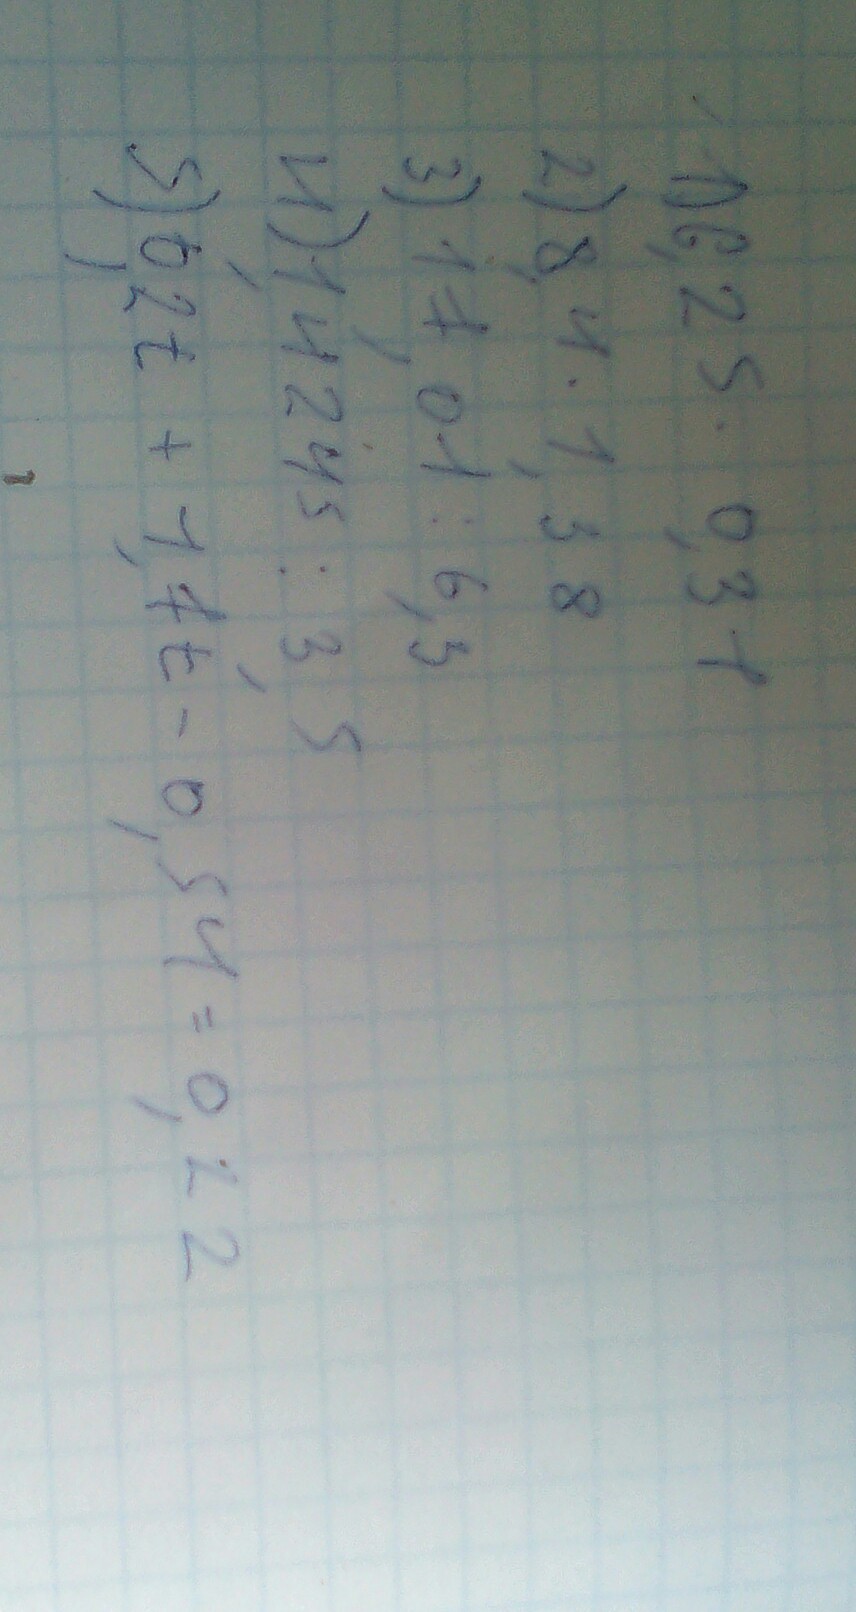 1) 6,25 · 0,31
2) 8,4 · 1,38
3) 17,01 : 6,3
4) 1,4245 : 3,5
5) 0,2t + 1,7t - 0,54 = 0,22